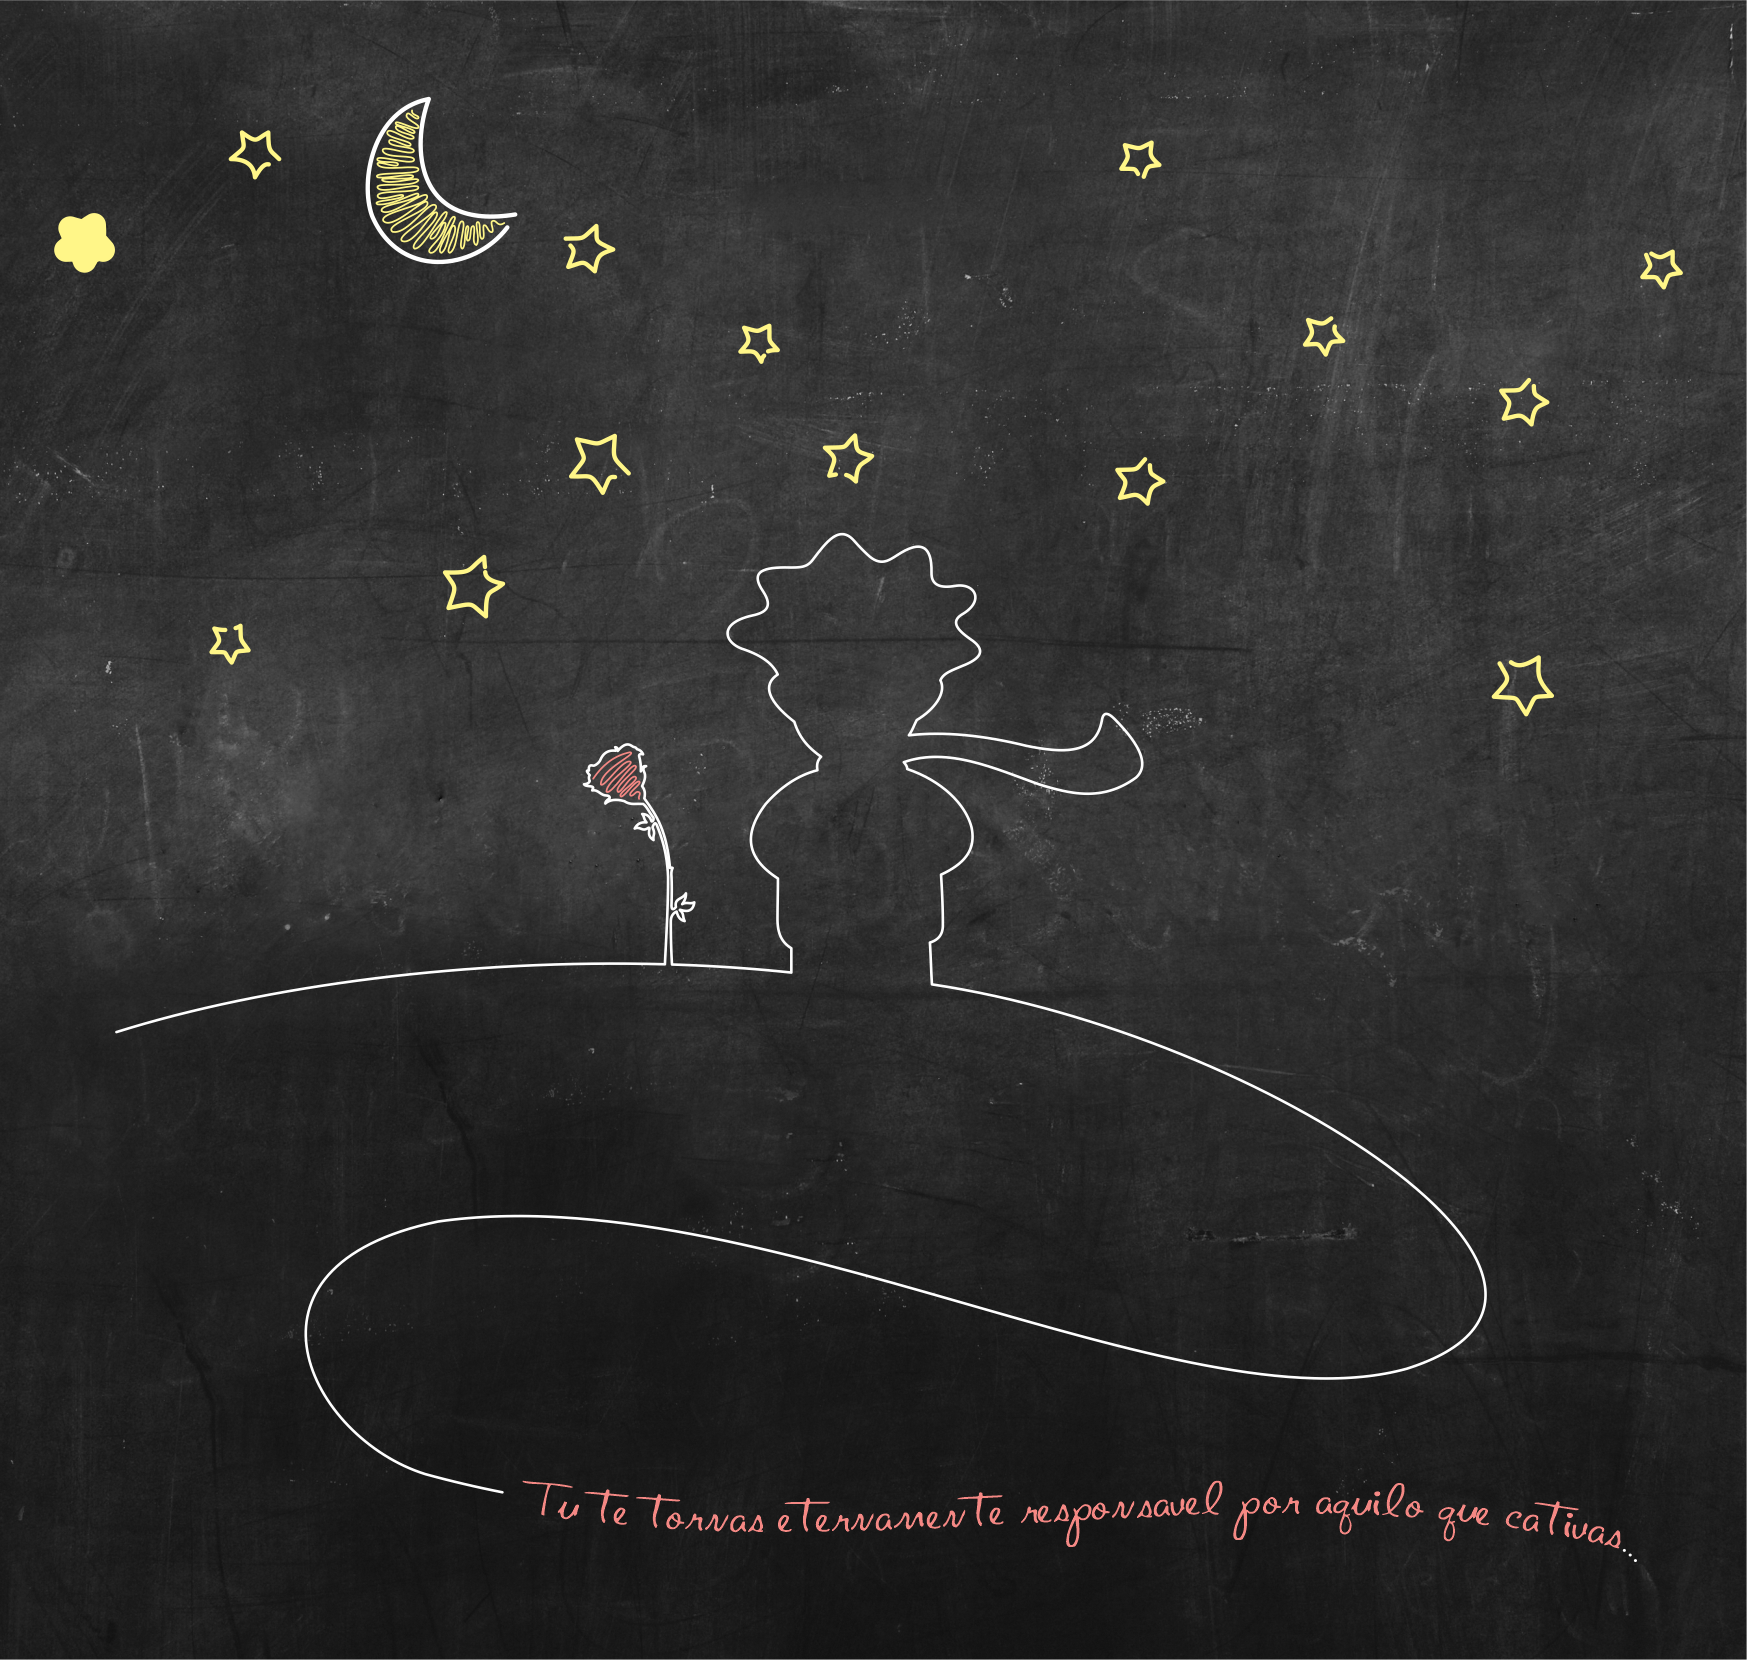 Tu te tornas eternamente responsavel por aquilo que cativas...